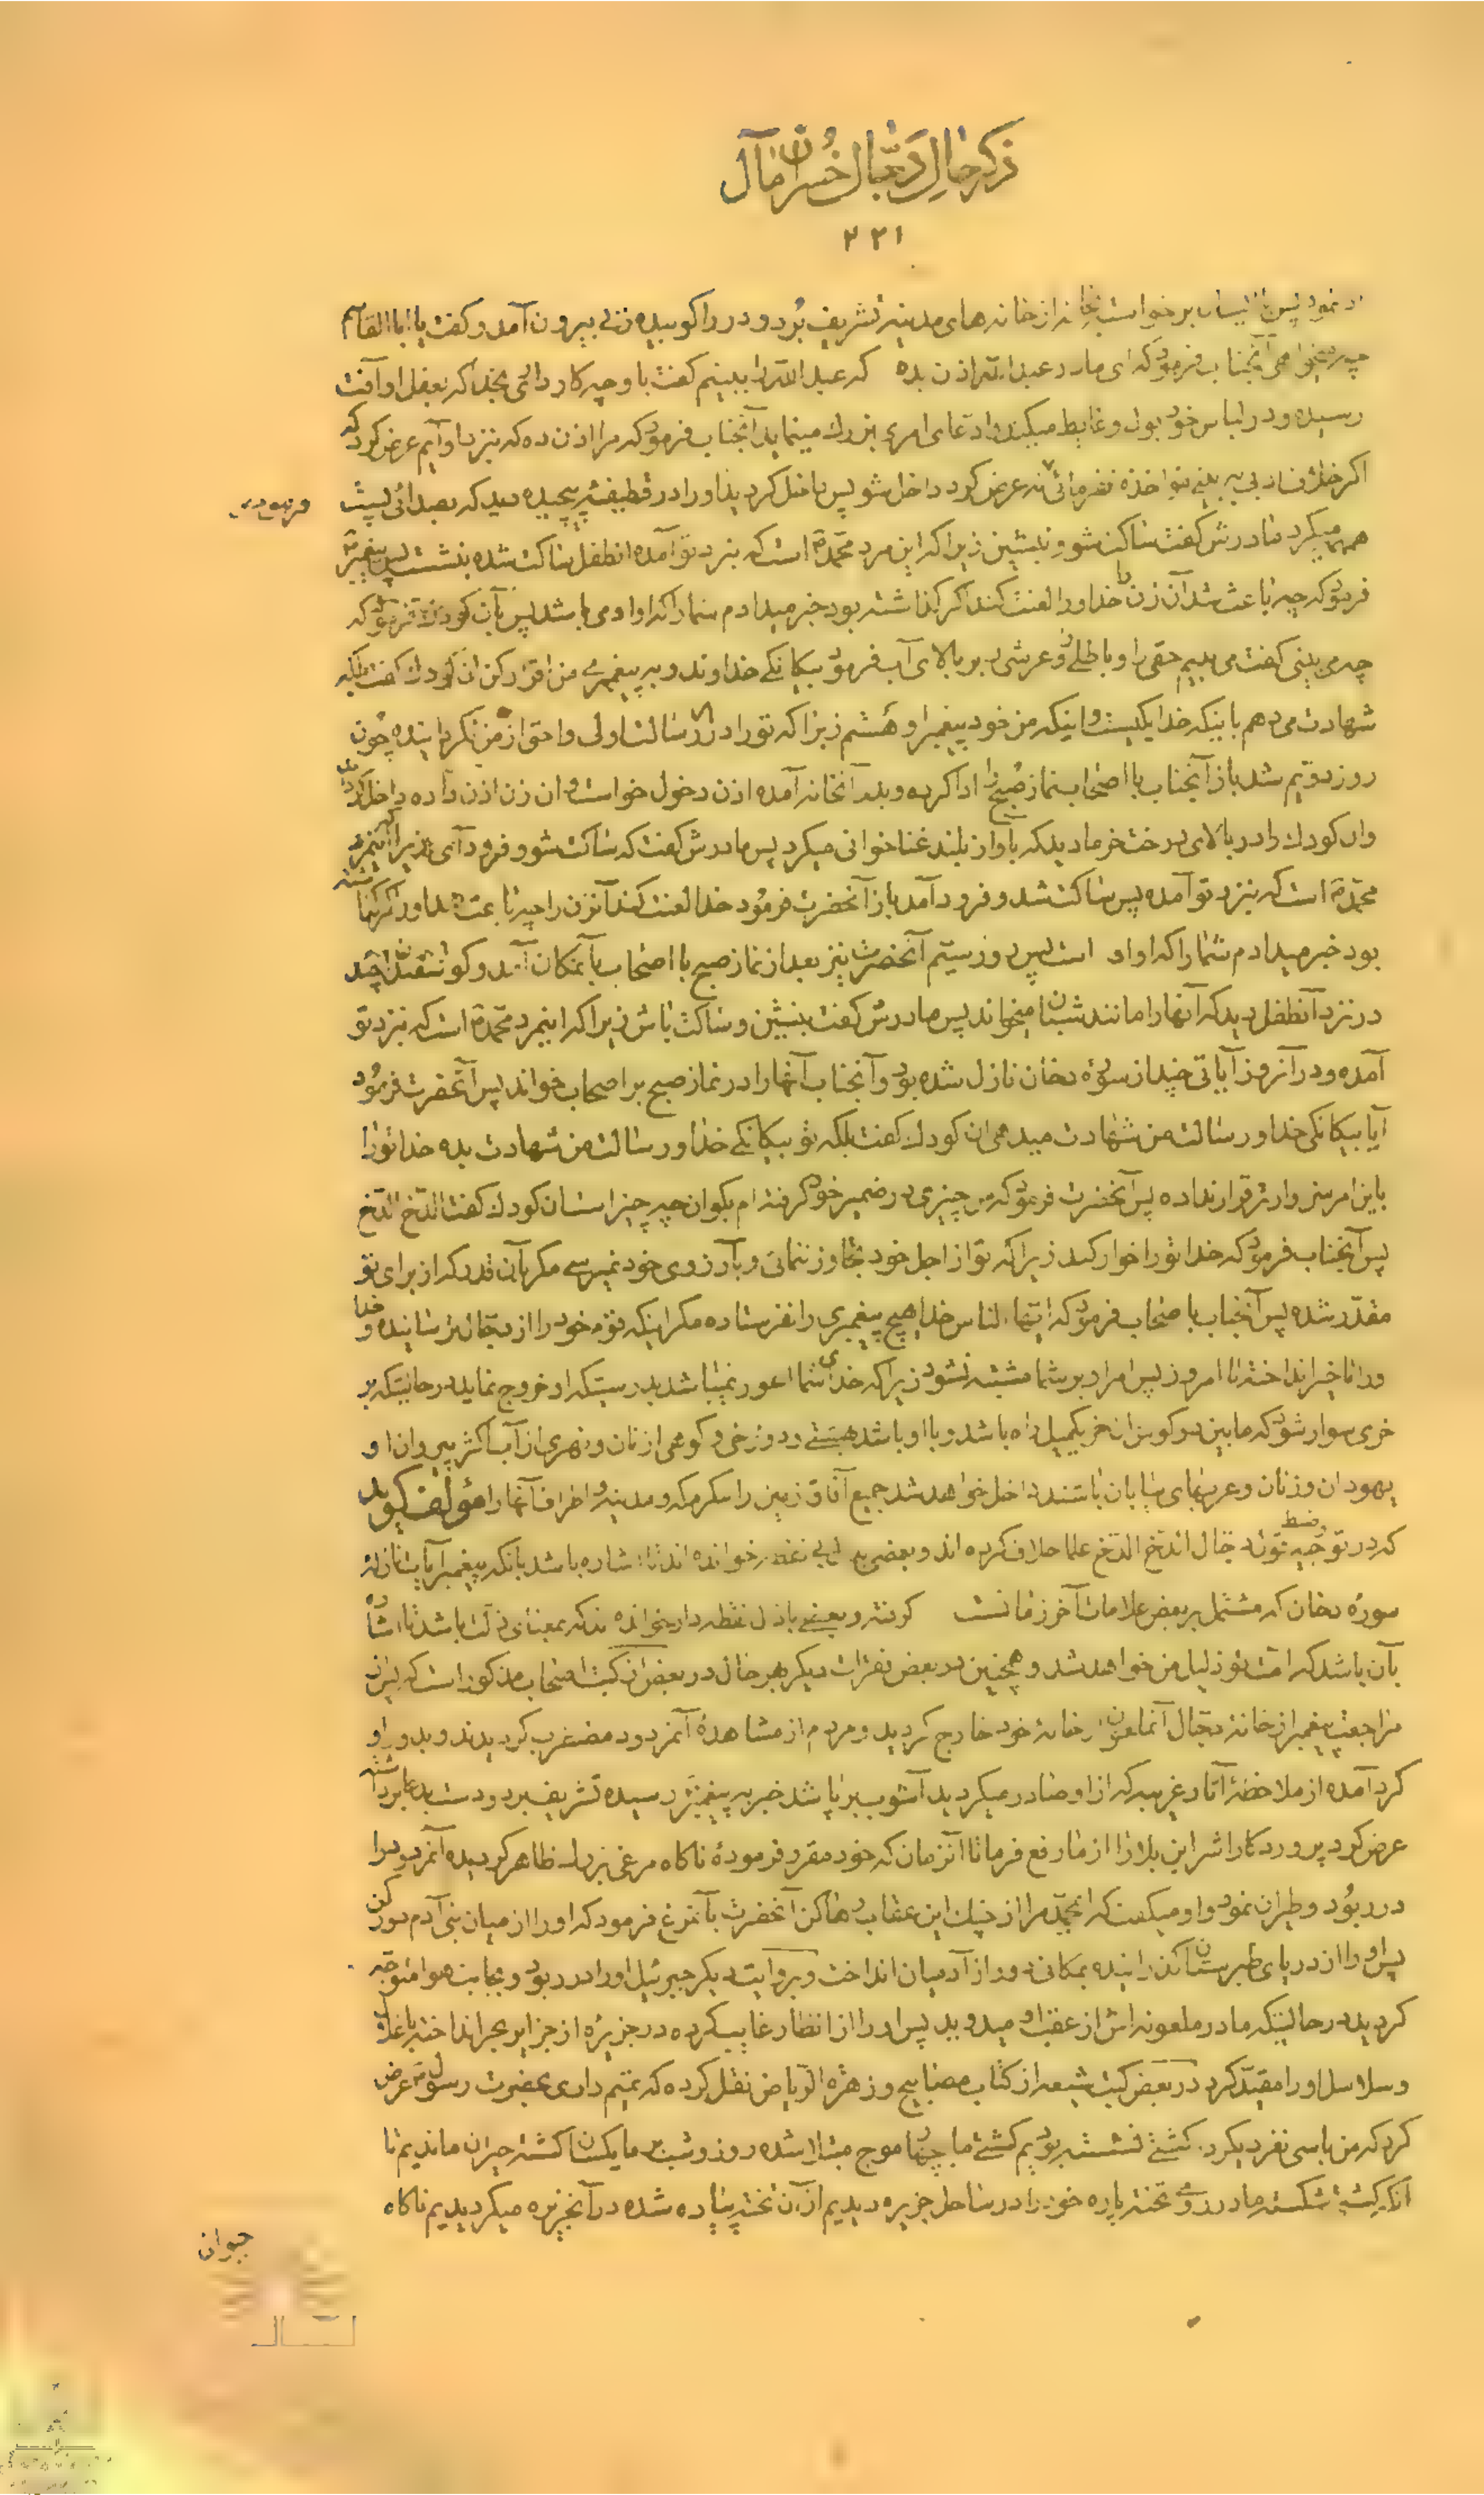 ذکر حال دجّال خُسران مآل
۲۲۱
برخواست از خانه های مدینه تشریف بُرد و در را کوبیده زنی بیرون آمد و گفت یا ابا القاسم
چه میخواهی آنجناب فرمود که ای مادر عبد الله اذن بده که عبد الله را ببینم گفت با او چه کار داری بخدا که بعقل او آفت
رسیده و در لباس خود بول و غایط میکند و ادعای امری بزرك مینماید آنجناب فرمود که مرا اذن ده که نزد او آیم عرض کرد که
اگر عرض کرد داخل شو پس داخل گردید او را در قطیفه پیچیده دید که بصدائی پست
همهمه میکرد مادرش گفت ساکت شو و بنشین زیرا که این مرد محمّد ص است که بنزد تو آمده انطفل ساکت شده بنشست پس پیغمبر ص
فرمود که چه باعث شد آن زن را خدا او را لعنت کند اگر گذاشته بود خبر میدادم شما را که او او می باشد پس بآن کودك فرمود که
چه می بینی گفت می بینم حقی را و باطلی و عرشی بر بالای آب فرمود بیگانگی خداوند و به پیغمبری من اقرار کن آن کودك گفت بلکه
شهادت می دهم باینکه خدا یکیست و اینکه من خود پیغمبر او هستم زیرا که تو را در رسالت اولی و احق از من نگردانیده چون
روز دویم شد باز آنجناب با اصحاب نماز صُبح را ادا کرده و بدر آنخانه آمده اذن دخول خواست و ان زن اذن داده داخل گردید
وان کودك را در بالای درخت خرما دید که بآواز بلند غنا خوانی میکرد پس مادرش گفت که ساکت شو و فرود آی زیرا که اینمرد
محمّد ص است که بنزد تو آمده پس ساکت شد و فرود آمد باز آنحضرت فرمُود خدا لعنت کند آنزن را چه باعث شد او را اگر گذاشته
بود خبر میدادم شما را که او او است پس روز سیّم آنحضرت نیز بعد از نماز صبح با اصحاب بآنمکان آمد و گوسفندان چند
در نزد آنطفل دید که آنها را مانند شبان میخواند پس مادرش گفت بنشین و ساکت باش زیرا که اینمرد محمّد ص است که نزد تو
آمده و در آنروز آیاتی چند از سورۀ دخان نازل شده بود و آنجناب آنها را در نماز صبح بر اصحاب خواند پس آنحضرت فرمُود
آیا بیگانگی خدا و رسالت من شهادت میدهی ان کودك گفت بلکه تو بیگانگی خدا و رسالت من شهادت بده خدا تو را
باین امر سزاوارتر قرار نداده پس آنحضرت فرمود که من چیزی در ضمیر خود گرفته ام بگو ان چه چیز است ان کودك گفت الدّخ الدّخ
پس آنجناب فرمود که خدا تو را خوار کند زیرا که تو از اجل خود تجاوز ننمائی و بآرزوی خود نمیرسی مگر بآن قدر که از برای تو
مقدّر شده پس آنجناب باصحاب فرمود که ایّها الناس خدا هیچ پیغمبری را نفرستاده مگر اینکه قوم خود را از دجّال ترسانیده و خدا
ورا تاخیر انداخته تا امروز پس امر او بر شما مشتبه نشود زیرا که خدای شما اعور نمیباشد بدرستیکه او خروج نماید درحالتیکه بر
خری سوار شود که ما بین دو گوش ان خر یکمیل راه باشد و با او باشد بهشتی و دوزخی و کوهی از نان و نهری از آب اکثر پیروان او
یهودان و زنان و عربهای بیابان باشند داخل خواهد شد جمیع آفاق زمین را مگر مکه و مدینه و اطراف آنها را مؤلف گوید
که در توجیه و ضبط قول دجّال الدّخ الدّخ علما خلاف کرده اند و بعضی خوانده اند تا اشاره باشد بآنکه پیغمبر آیات نازله
سوره دخان که مشتمل بر بعض علامات آخر زمانست گرفته و بعضی باذال نقطه دار خوانده اند که بمعنای ذلّت باشد تا اشاره
بآن باشد که امت تو ذلیل من خواهد شد و همچنین در بعض فقرات دیگر بهر حال در بعض از کتب اصحاب مذکور است که پس از
مراجعت پیغمبر از خانۀ دجّال آنملعون از خانۀ خود خارج گردید و مردم از مشاهدۀ آنمردود مضطرب گردیدند و بدور او
گرد آمده از ملاحظۀ آثار غریبه که از او صادر میگردید آشوب برپا شد خبر به پیغمبر رسیده تشریف برد و دست بدعا برداشته
عرض کرد پروردگارا شر این بلا را از ما رفع فرما تا آنزمان که خود مقرّر فرمودۀ ناگاه مرغی بزرك ظاهر گردیده آنمردود را
در ربُود و طیران نمود و او میگفت که یا محمّد مرا از چنك این عقاب رها کن آنحضرت بآنمرغ فرمود که او را از میان بنی آدم دور کن
پس او را از دریای طبرستان گذرانیده بمکانی دور از آدمیان انداخت و بروایت دیگر جبرئیل او را در ربود و بجانب هوا متوجّه
گردید در حالتیکه مادر ملعونه اش از عقب او میدوید پس او را از انظار غایب کرده در جزیرۀ از جزایر بحر انداخته باغلال
و سلاسل او را مقیّد کرد در بعض کتب شیعه از کتاب مصابیح و زهرة الریاض نقل کرده که تمیم داری بحضرت رسول ص عرض
کرد که من باسی نفر دیگر در کشتی نشسته بودیم کشتی ما بچهار موج مبتلا شده روز و شب بر ما یکسان گشته حیران ماندیم تا
آنکه کشتی شکسته ما در روی تخته پاره خود را در ساحل جزیره دیدیم از آن تخته پیاده شده در آنجزیره میگردیدیم ناگاه
حیوان